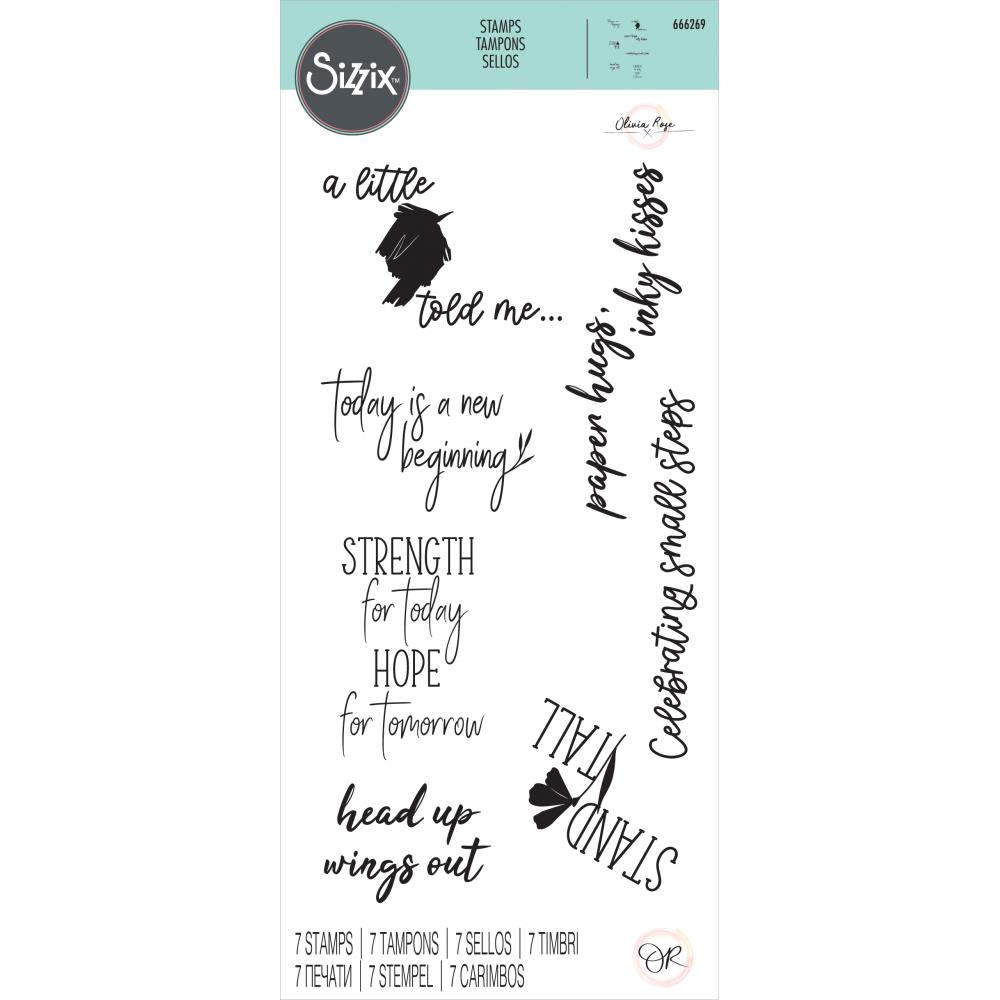 Sizzix™
STAMPS
TAMPONS
SELLOS
666269
Olivia Rose
a little
told me...
paper hugs,
inky kisses
today is a new
beginning
Celebrating small steps
STRENGTH
for today
HOPE
for tomorrow
STAND
TALL
head up
wings out
7 STAMPS | 7 TAMPONS | 7 SELLOS | 7 TIMBRI
7 ПЕЧАТИ | 7 STEMPEL | 7 CARIMBOS
OR